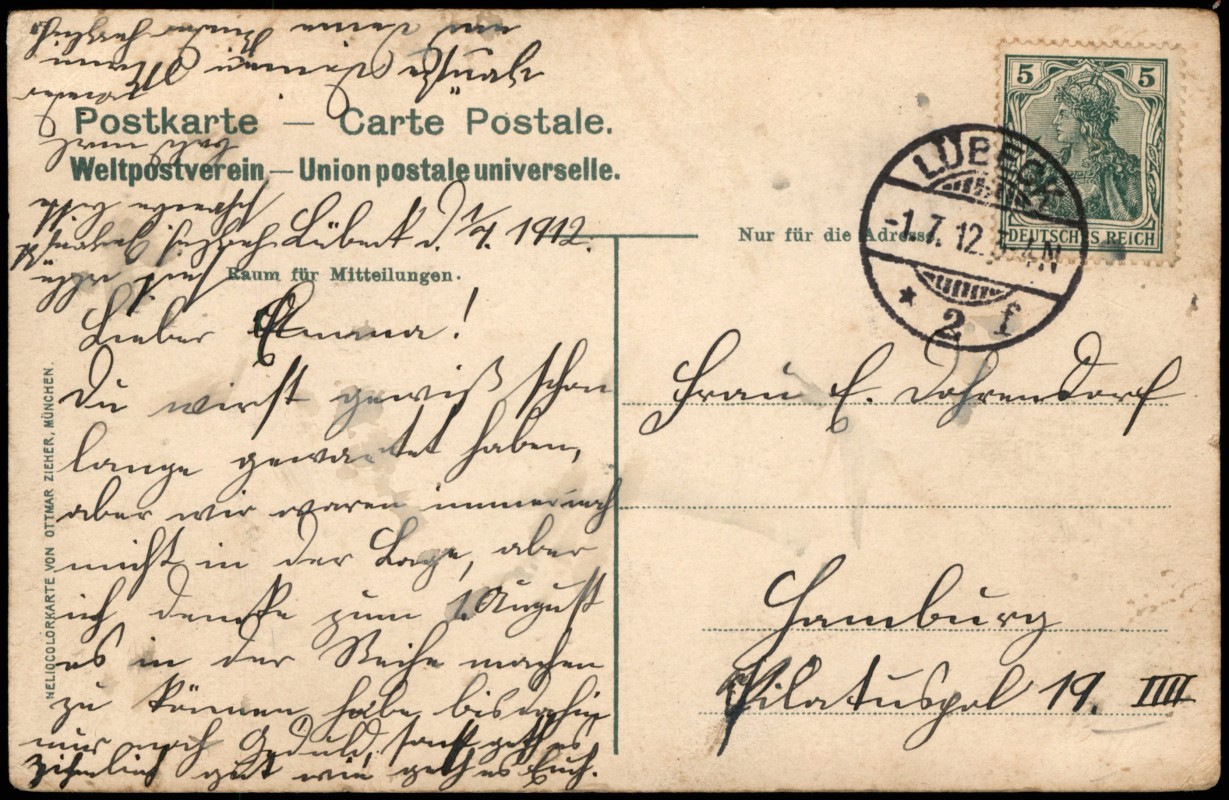 Postkarte — Carte Postale.
Weltpostverein — Union postale universelle.
Lübeck d. 1/7. 1912.
Raum für Mitteilungen.
Lieber Emma!
Du wirst gewiß schon
lange gewartet haben,
aber wir waren immer noch
nicht in der Lage, aber
ich denke zum 1. August
es in der Reihe machen
zu können, habe bis dahin
nur noch Geduld, sonst geht es
ziemlich gut wie geht es Euch.
HELIOCOLORKARTE VON OTTMAR ZIEHER, MÜNCHEN.
5 5
DEUTSCHES REICH
LÜBECK
-1.7.12.
* 2 f
Nur für die Adresse
Frau E. Dohrendorf
Hamburg
Pilatuspol 19. IIII